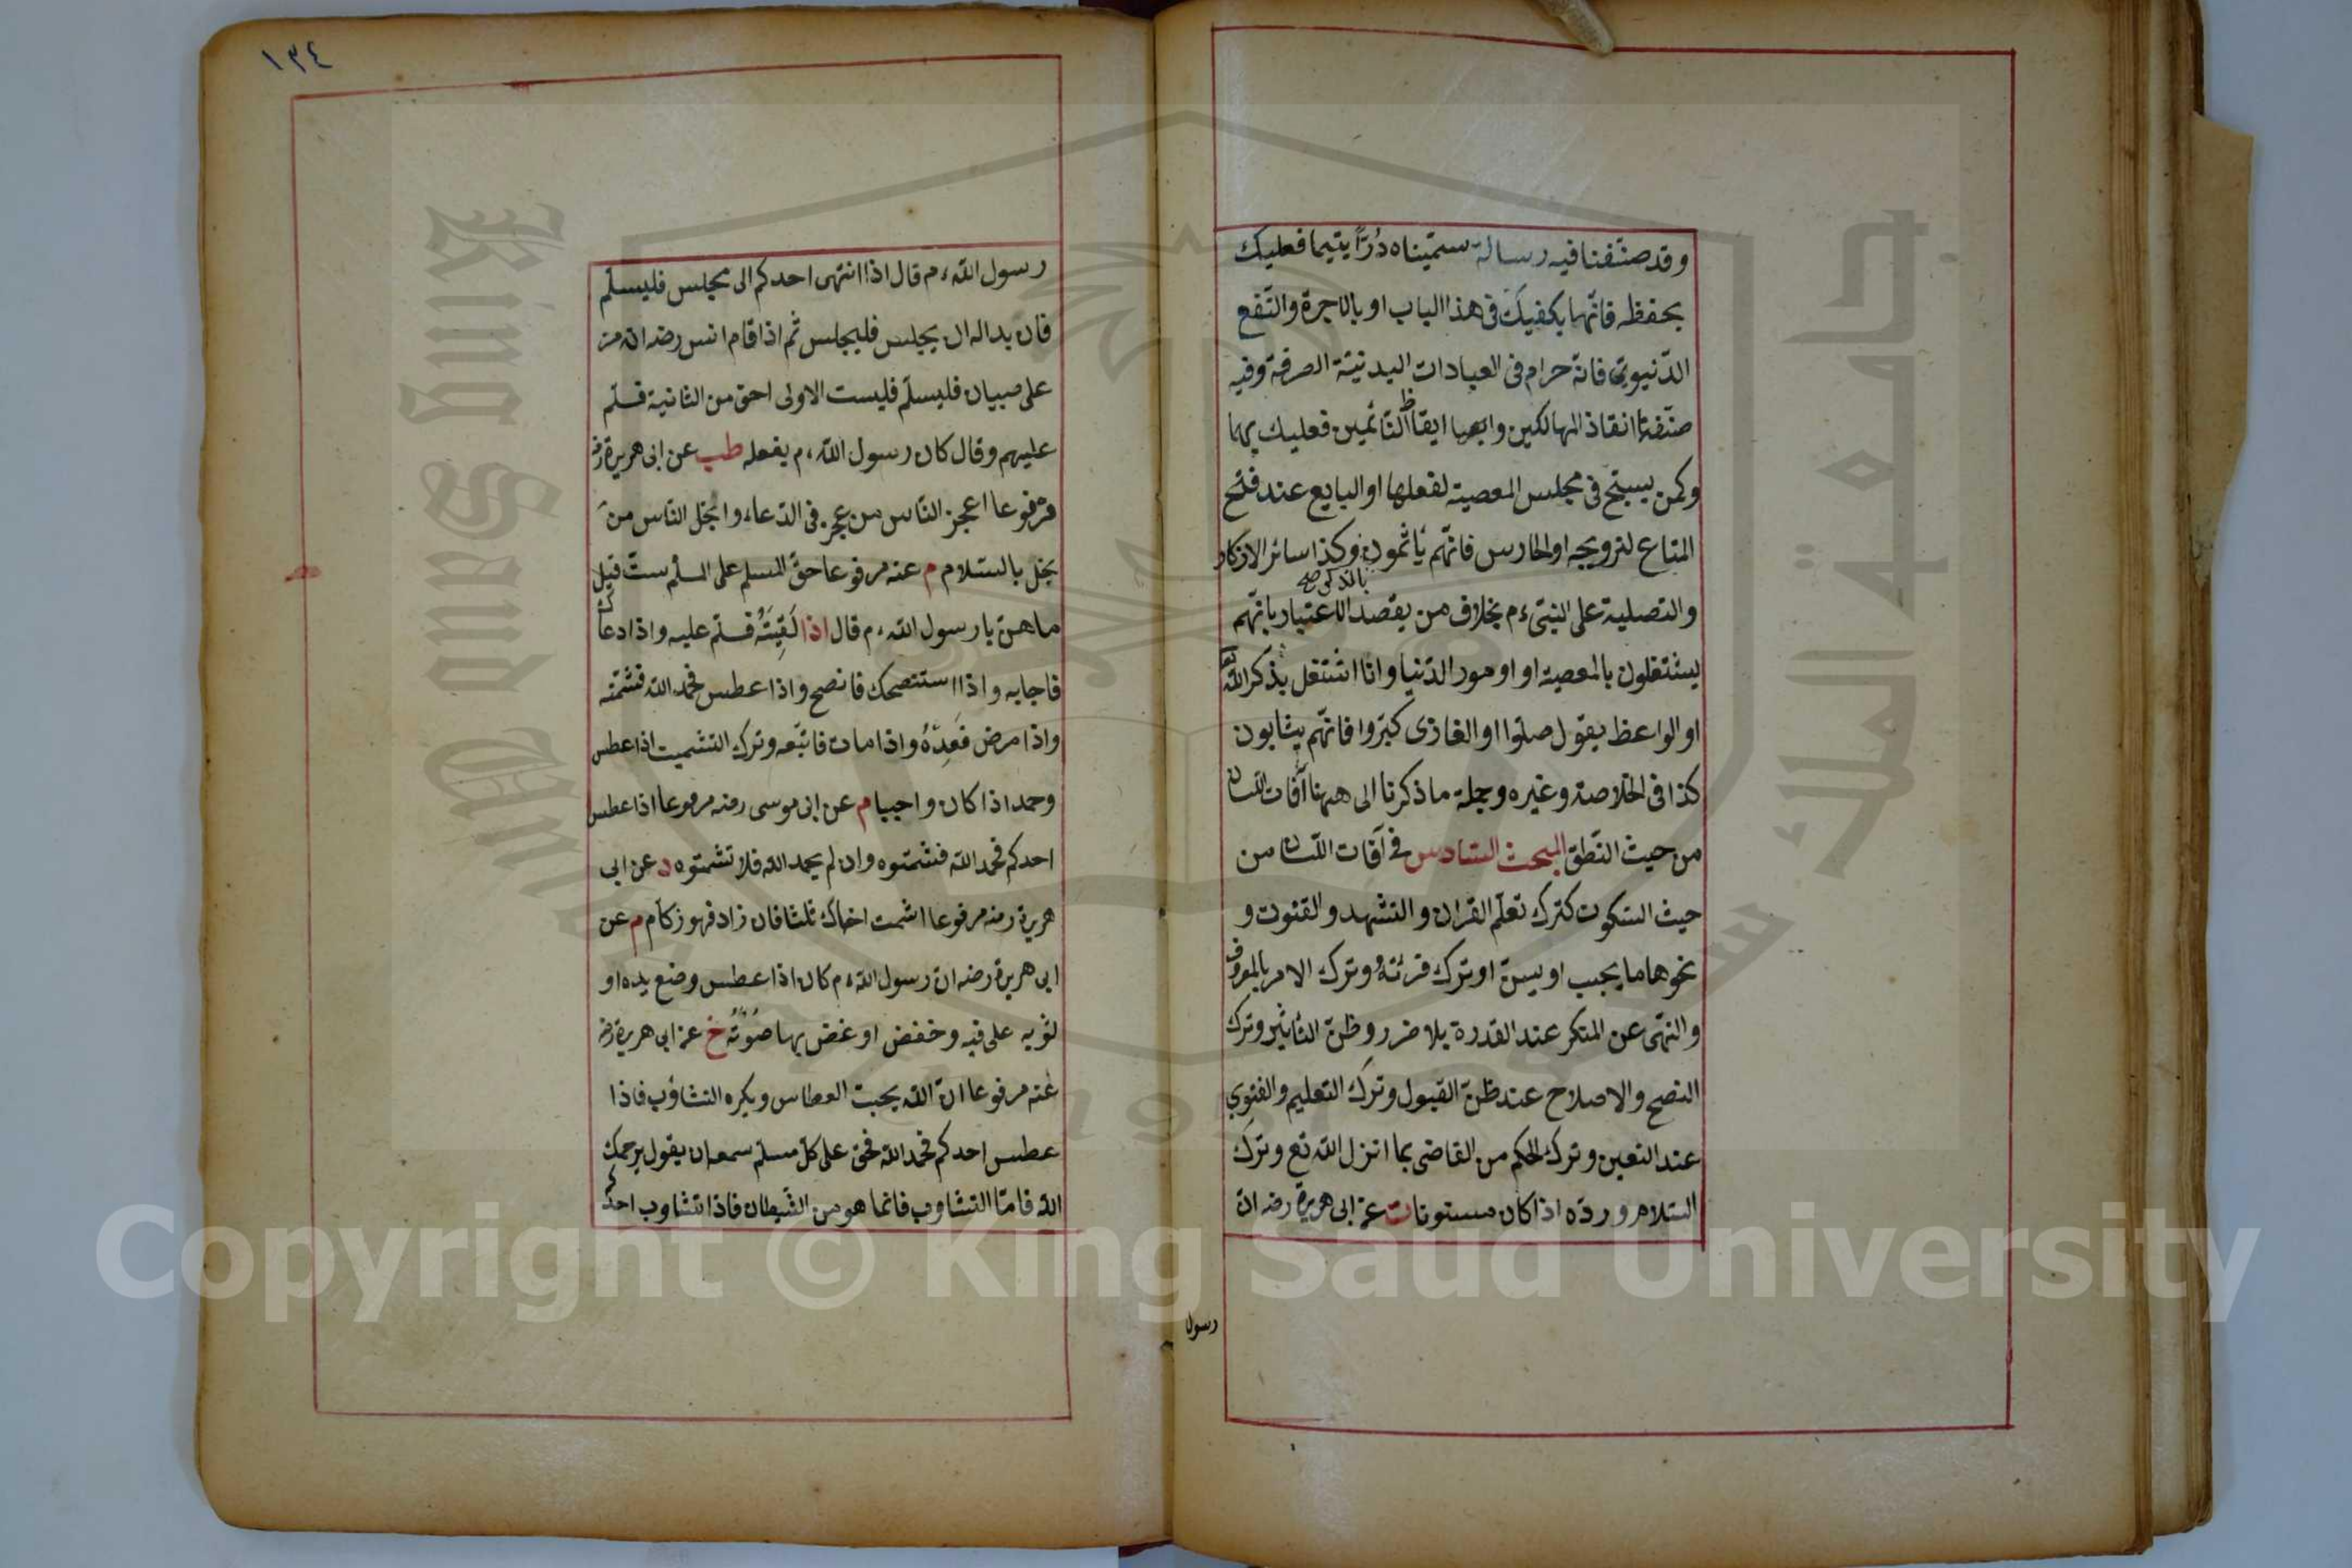 وقد صنّفنا فيه رسالة سمّيناه دُرّاً يتيما فعليك
بحفظه فانّها يكفيك فى هذا الباب او بالاجرة والنّفع
الدّنيوىّ فانه حرام فى العبادات البدنيّة الصرفة وفيه
صنّفنا انقاذ الهالكين وايضا ايقاظ النّائمين فعليك بهما
وكمن يسبّح فى مجلس المعصية لفعلها او البايع عند فتح
المتاع لترويجه او الحارس فانّهم يأثمون وكذا سائر الاذكار
بالذكر صح
والتصلية على النبىّ م بخلاف من يقصد الاعتبار بانّهم
يشتغلون بالمعصية او امور الدّنيا وانا اشتغل بذكر الله تع
او الواعظ يقول صلّوا او الغازى كبّروا فانّهم يثابون
كذا فى الخلاصة وغيره وجملة ما ذكرنا الى ههنا آفات اللّسان
من حيث النّطق المبحث السّادس فى آفات اللّسان من
حيث السّكوت كترك تعلّم القران والتشهد والقنوت و
نحوها ما يجب او يسنّ او ترك قرئته وترك الامر بالمعروف
والنّهى عن المنكر عند القدرة بلا ضرر وظنّ التأثير وترك
النصح والاصلاح عند ظنّ القبول وترك التعليم والفتوى
عند التعين وترك الحكم من القاضى بما انزل الله تع وترك
السّلام وردّه اذا كان مسنونا ت عن ابى هريرة رضه انّ
رسول
١٣٤
رسول الله م قال اذا انتهى احدكم الى مجلس فليسلّم
فان بدا له ان يجلس فليجلس ثم اذا قام انس رضه انه مرّ
على صبيان فليسلّم فليست الاولى احق من الثانية فسلّم
عليهم وقال كان رسول الله م يفعله طب عن ابى هريرة رض
مرفوعا اعجز النّاس من عجز فى الدّعاء وابخل النّاس من
بخل بالسّلام م عنه مرفوعا حقّ المسلم على المسلم ستّ قيل
ما هنّ يا رسول الله م قال اذا لَقِيتَهُ فسلّم عليه واذا دعاك
فاجابه واذا استنصحك فانصح واذا عطس فحمد الله فشمّته
واذا مرض فَعِدْهُ واذا مات فاتبعه وترك التشميت اذا عطس
وحمد اذا كان واجبا م عن ابى موسى رضه مرفوعا اذا عطس
احدكم فحمد الله فشمّتوه وان لم يحمد الله فلا تشمتوه د عن ابى
هريرة رضه مرفوعا اشمت اخاك ثلثا فان زاد فهو زكام م عن
ابى هريرة رضه ان رسول الله م كان اذا عطس وضع يده او
ثوبه على فيه وخفض او غض بها صَوْتَهُ خ عن ابى هريرة رض
عنه مرفوعا انّ الله يحبّ العطاس ويكره التثاؤب فاذا
عطس احدكم فحمد الله فحق على كلّ مسلم سمعه ان يقول يرحمك
الله فامّا التثاوب فانما هو من الشّيطان فاذا تثاوب احدكم
جامعة الملك سعود
King Saud University
1957
Copyright © King Saud University